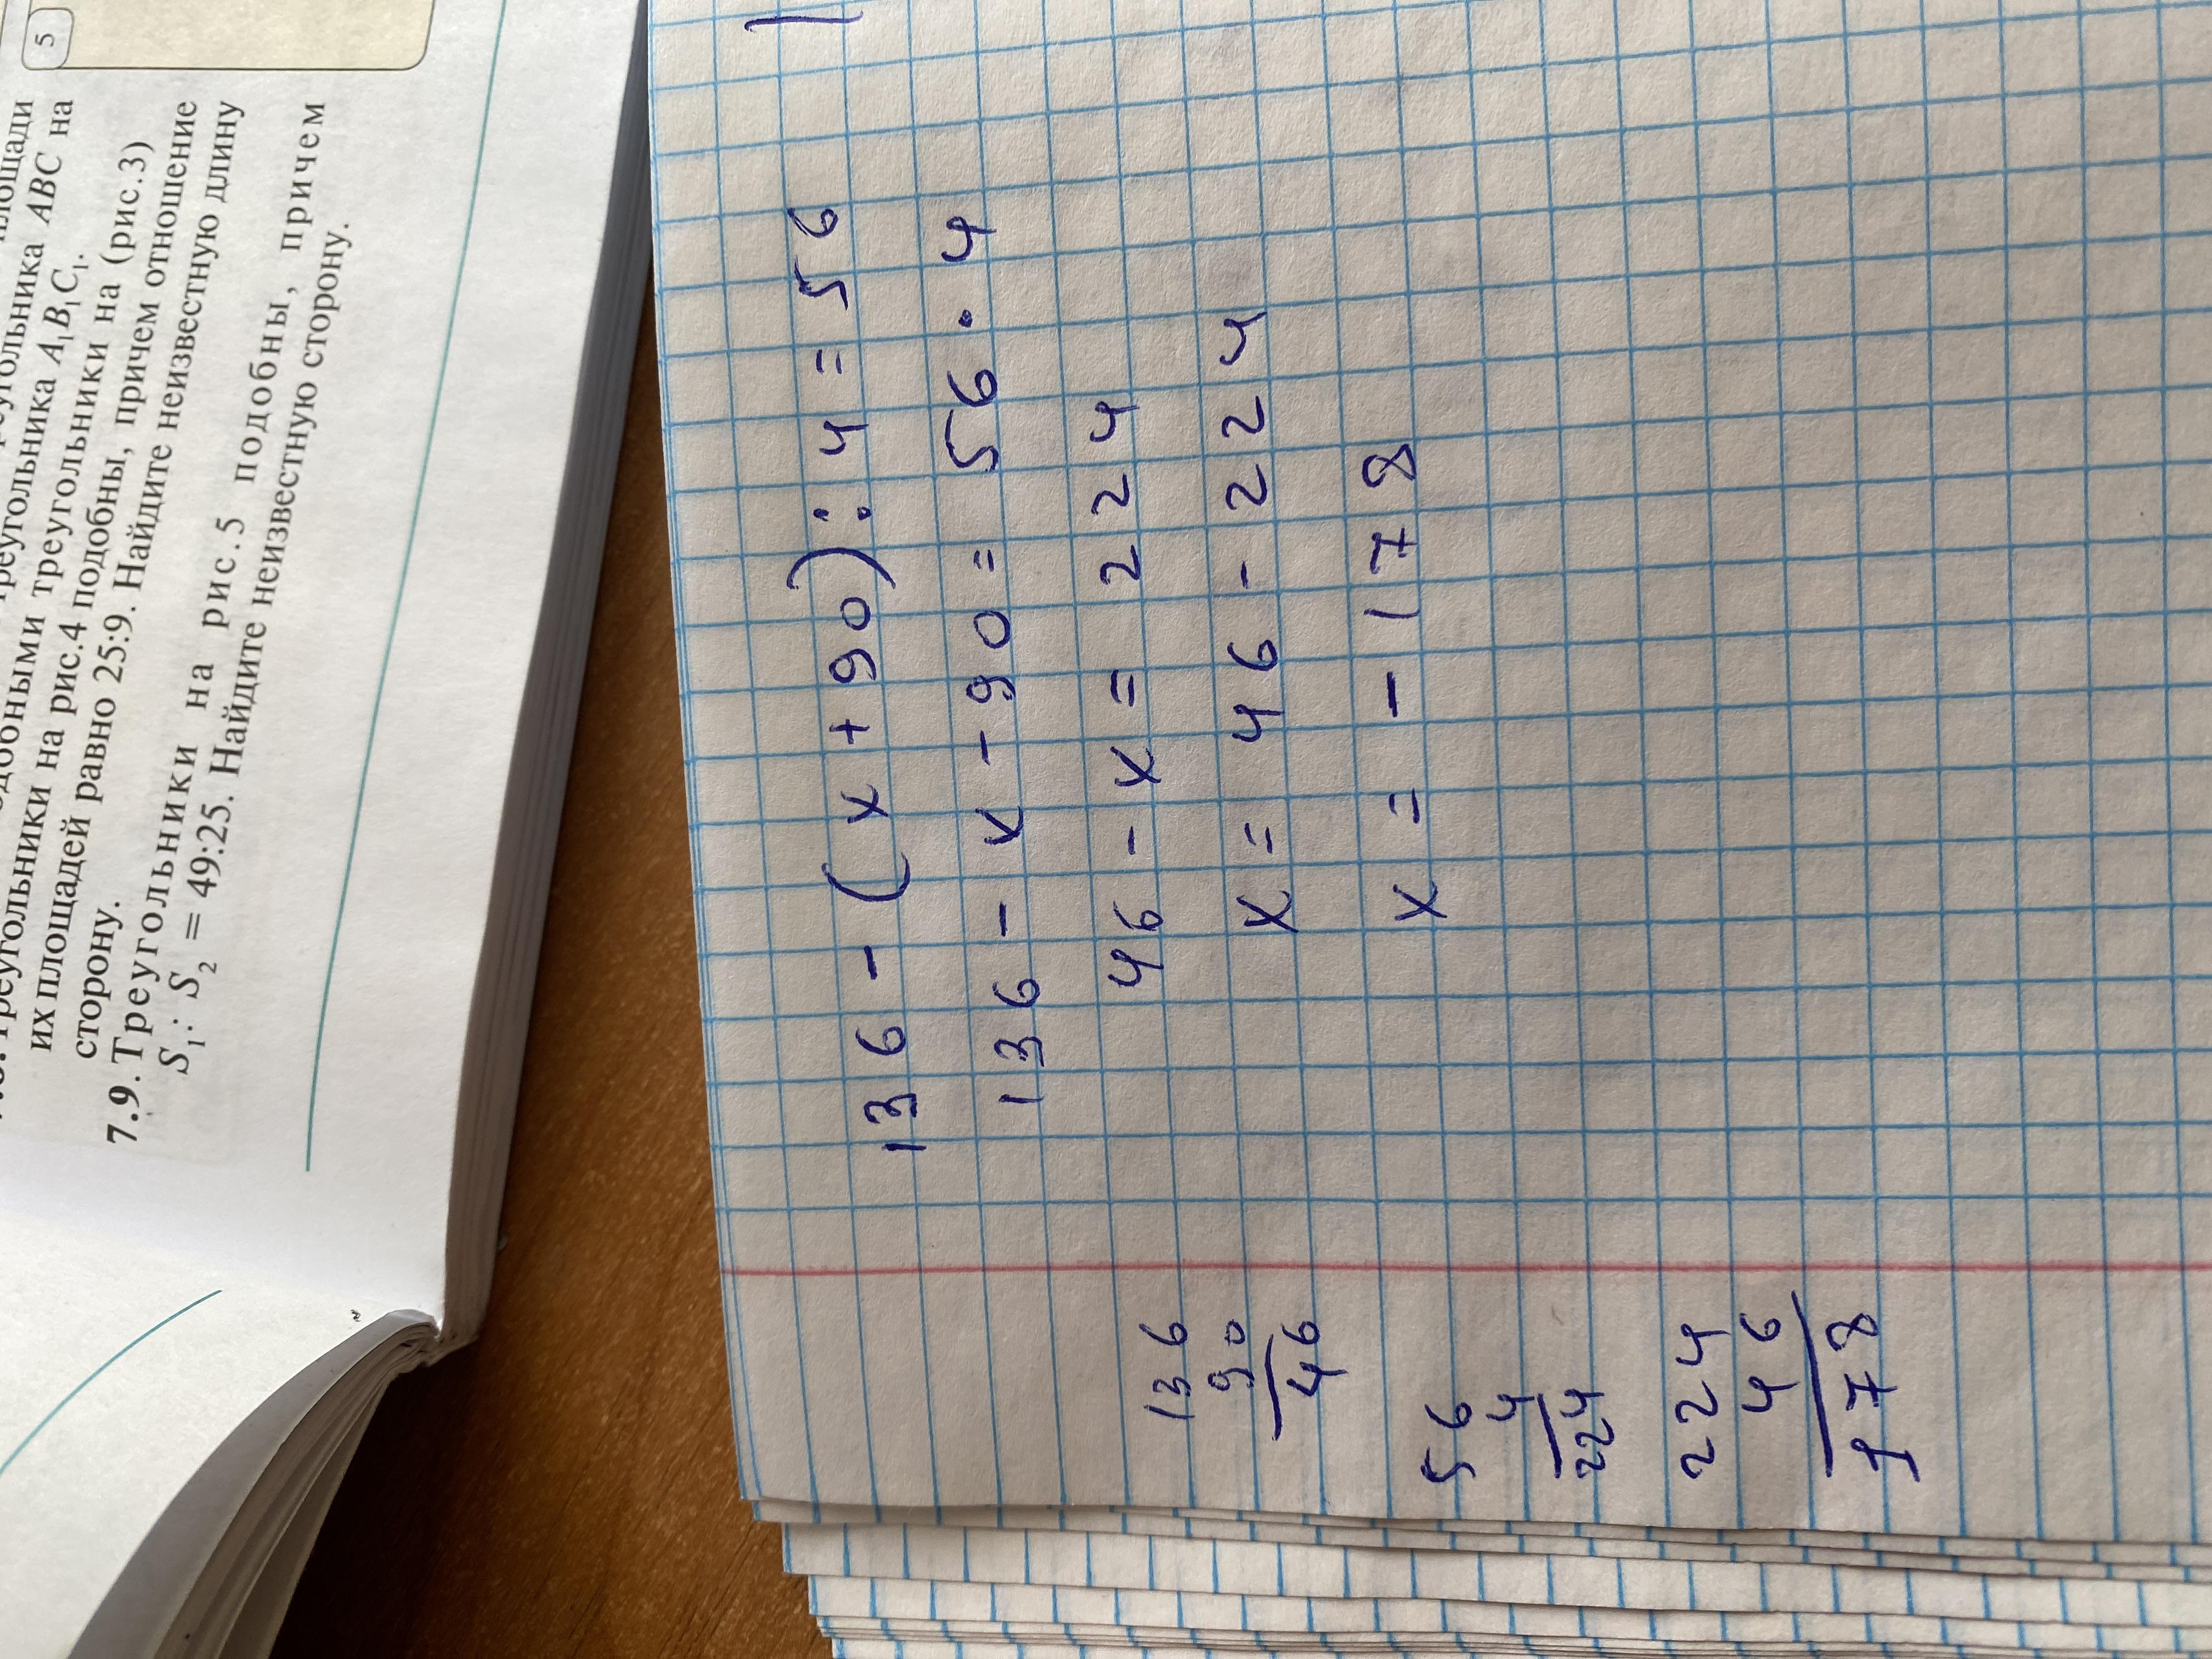 5
площади
треугольника ABC на
треугольника A₁B₁C₁.
треугольники на (рис.3)
треугольники на рис.4 подобны, причем отношение
их площадей равно 25:9. Найдите неизвестную длину
сторону.
7.9. Треугольники на рис.5 подобны, причем
S₁: S₂ = 49:25. Найдите неизвестную сторону.
136 - (x + 90) : 4 = 56
136 - x - 90 = 56 · 4
46 - x = 224
x = 46 - 224
x = - 178
136
90
46
56
4
224
224
46
178